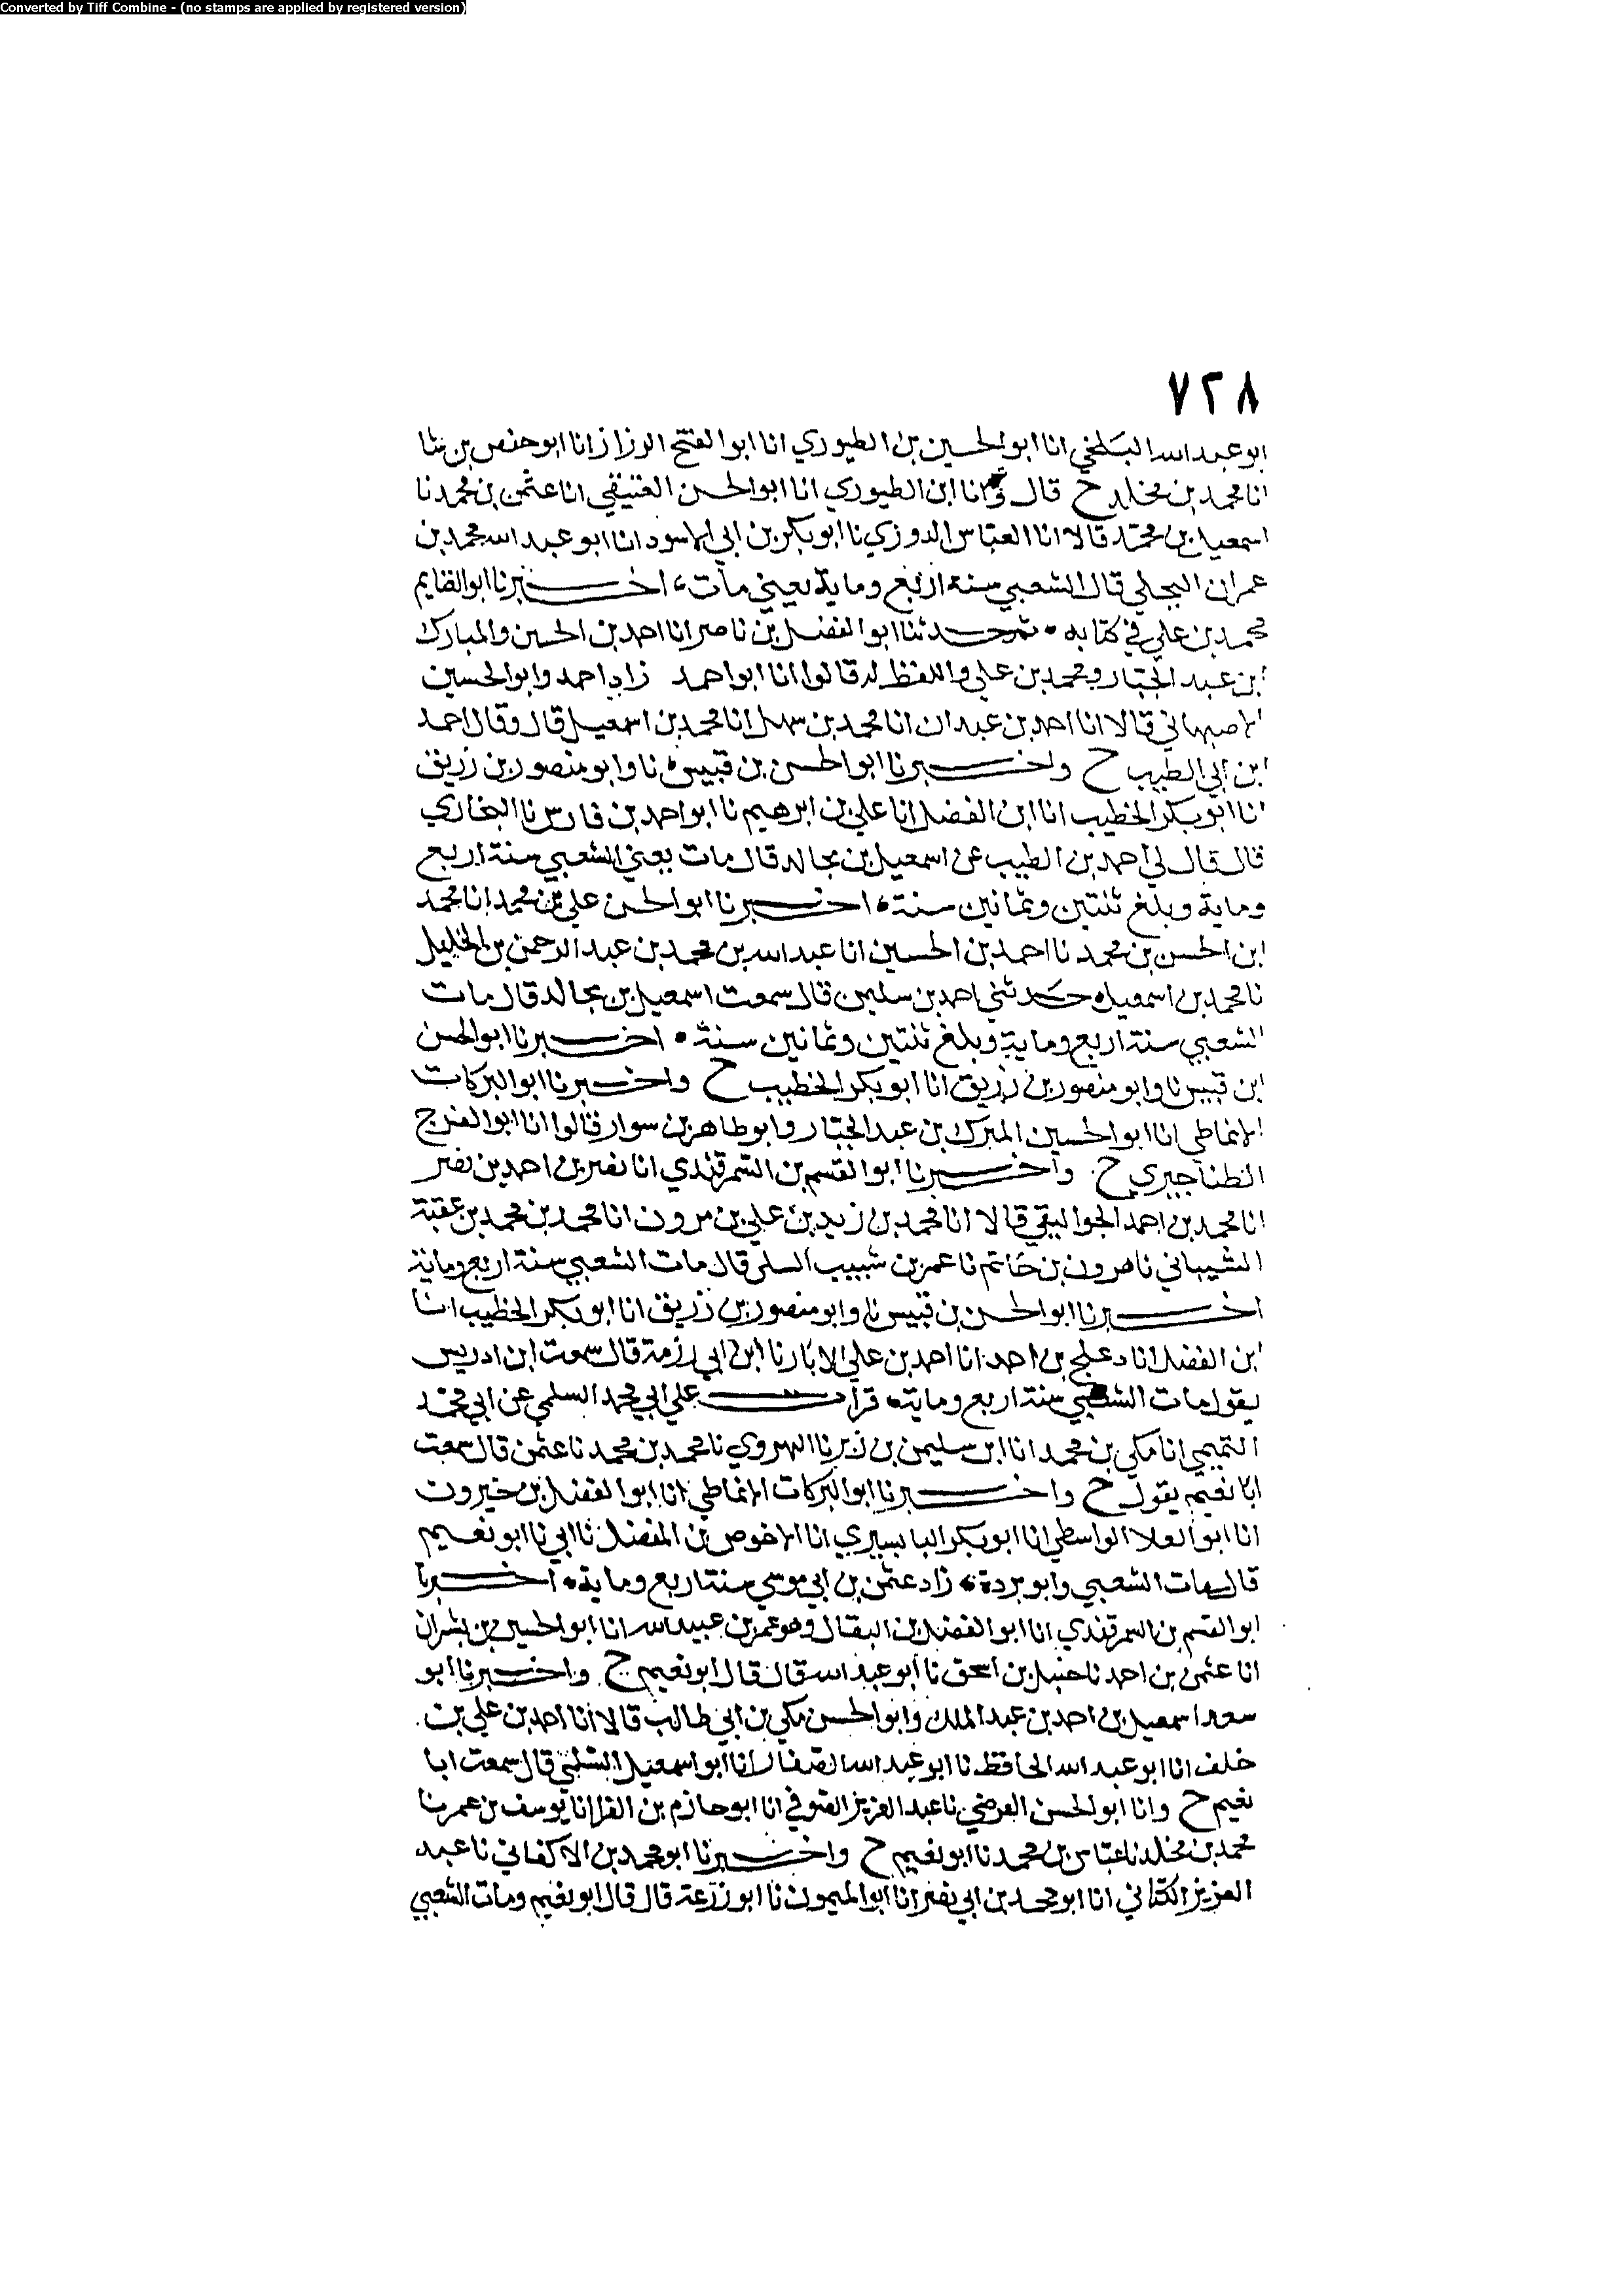 Converted by Tiff Combine - (no stamps are applied by registered version)
٧٢٨
ابو عبد الله البلخي انا ابو الحسين بن الطيوري انا ابو الفتح الرزاز انا ابو حفص بن شا
انا محمد بن مخلد ح قال وانا ابن الطيوري انا ابو الحسن العتيقي انا عثمن بن محمد نا
اسمعيل بن محمد قالا انا العباس الدوري نا ابو بكر بن ابي الاسود انا ابو عبد الله محمد بن
عمران البجلي قال الشعبي سنة اربع وماية يعني مات، اخبرنا ابو الغنايم
محمد بن علي في كتابه • ثم حدثنا ابو الفضل بن ناصر انا احمد بن الحسن والمبارك
ابن عبد الجبار ومحمد بن علي واللفظ له قالوا انا ابو احمد زاد احمد وابو الحسين
الاصبهاني قالا انا احمد بن عبدان انا محمد بن سهل انا محمد بن اسمعيل قال وقال احمد
ابن ابي الطيب ح واخبرنا ابو الحسن بن قبيس نا وابو منصور بن زريق
انا ابو بكر الخطيب انا ابن الفضل انا علي بن ابرهيم نا ابو احمد بن فارس نا البخاري
قال قال لي احمد بن الطيب عن اسمعيل بن مجالد قال مات يعني الشعبي سنة اربع
وماية وبلغ ثنتين وثمانين سنة • اخبرنا ابو الحسن علي بن محمد انا محمد
ابن الحسن بن محمد نا احمد بن الحسين انا عبد الله بن محمد بن عبد الرحمن بن الخليل
نا محمد بن اسمعيل حدثني احمد بن سليمن قال سمعت اسمعيل بن مجالد قال مات
الشعبي سنة اربع وماية وبلغ ثنتين وثمانين سنة • اخبرنا ابو الحسن
ابن قبيس نا وابو منصور بن زريق انا ابو بكر الخطيب ح واخبرنا ابو البركات
الانماطي انا ابو الحسين المبرك بن عبد الجبار وابو طاهر بن سوار قالوا انا ابو الفرج
الطناجيري ح واخبرنا ابو القسم بن السمرقندي انا نصر بن احمد بن نصر
انا محمد بن احمد الجواليقي قالا انا محمد بن زيد بن علي بن مرون انا محمد بن محمد بن عقبة
الشيباني نا هرون بن حاتم نا عمر بن شبيب السلي قال مات الشعبي سنة اربع وماية
اخبرنا ابو الحسن بن قبيس نا وابو منصور بن زريق انا ابو بكر الخطيب انا
ابن الفضل انا دعلج بن احمد انا احمد بن علي الابار نا ابن ابي رزمة قال سمعت ابن ادريس
يقول مات الشعبي سنة اربع وماية • قرات علي ابي محمد السلمي عن ابي محمد
التميمي انا مكي بن محمد انا ابن سليمن بن زبر نا الهروي نا محمد بن محمد نا عثمن قال سمعت
ابا نعيم يقول ح واخبرنا ابو البركات الانماطي انا ابو الفضل بن خيرون
انا ابو العلا الواسطي انا ابو بكر البابسيري انا الاخوص بن المفضل نا ابي نا ابو نعيم
قال مات الشعبي وابو بردة • زاد عثمن بن ابي موسي سنة اربع وماية • اخبرنا
ابو القسم بن السمرقندي انا ابو الفضل بن البقال وهو عمر بن عبيد الله انا ابو الحسين بن بشران
انا عثمن بن احمد نا حنبل بن اسحق نا ابو عبد الله قال قال ابو نعيم ح واخبرنا ابو
سعد اسمعيل بن احمد بن عبد الملك وابو الحسن مكي بن ابي طالب قالا انا احمد بن علي بن
خلف انا ابو عبد الله الحافظ نا ابو عبد الله الصفار انا ابو اسمعيل السلمي قال سمعت ابا
نعيم ح وانا ابو الحسن الفرضي نا عبد العزيز الصوفي انا ابو حازم بن الفرا انا يوسف بن عمر نا
محمد بن مخلد نا عباس بن محمد نا ابو نعيم ح واخبرنا ابو محمد بن الاكفاني نا عبد
العزيز الكتاني انا ابو محمد بن ابي نصر انا ابو الميمون نا ابو زرعة قال قال ابو نعيم ومات الشعبي